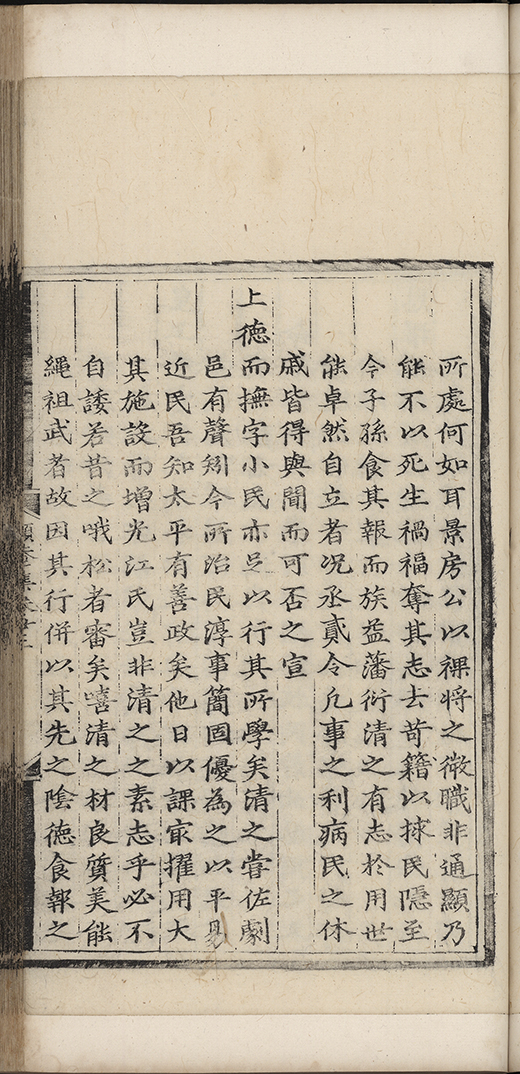 所處何如耳景房公以裸將之微職非通顯乃
能不以死生禍福奪其志去苛籍以捄民隱至
今子孫食其報而族益蕃衍清之有志於用世
能卓然自立者况丞貳令凡事之利病民之休
戚皆得與聞而可否之宣
上德而撫字小民亦足以行其所學矣清之嘗佐劇
邑有聲矧今所治民淳事簡固優為之以平易
近民吾知太平有善政矣他日以課冣擢用大
其施設而增光江氏豈非清之之素志乎必不
自諉若昔之哦松者審矣嘻清之材良質美能
繩祖武者故因其行併以其先之陰德食報之